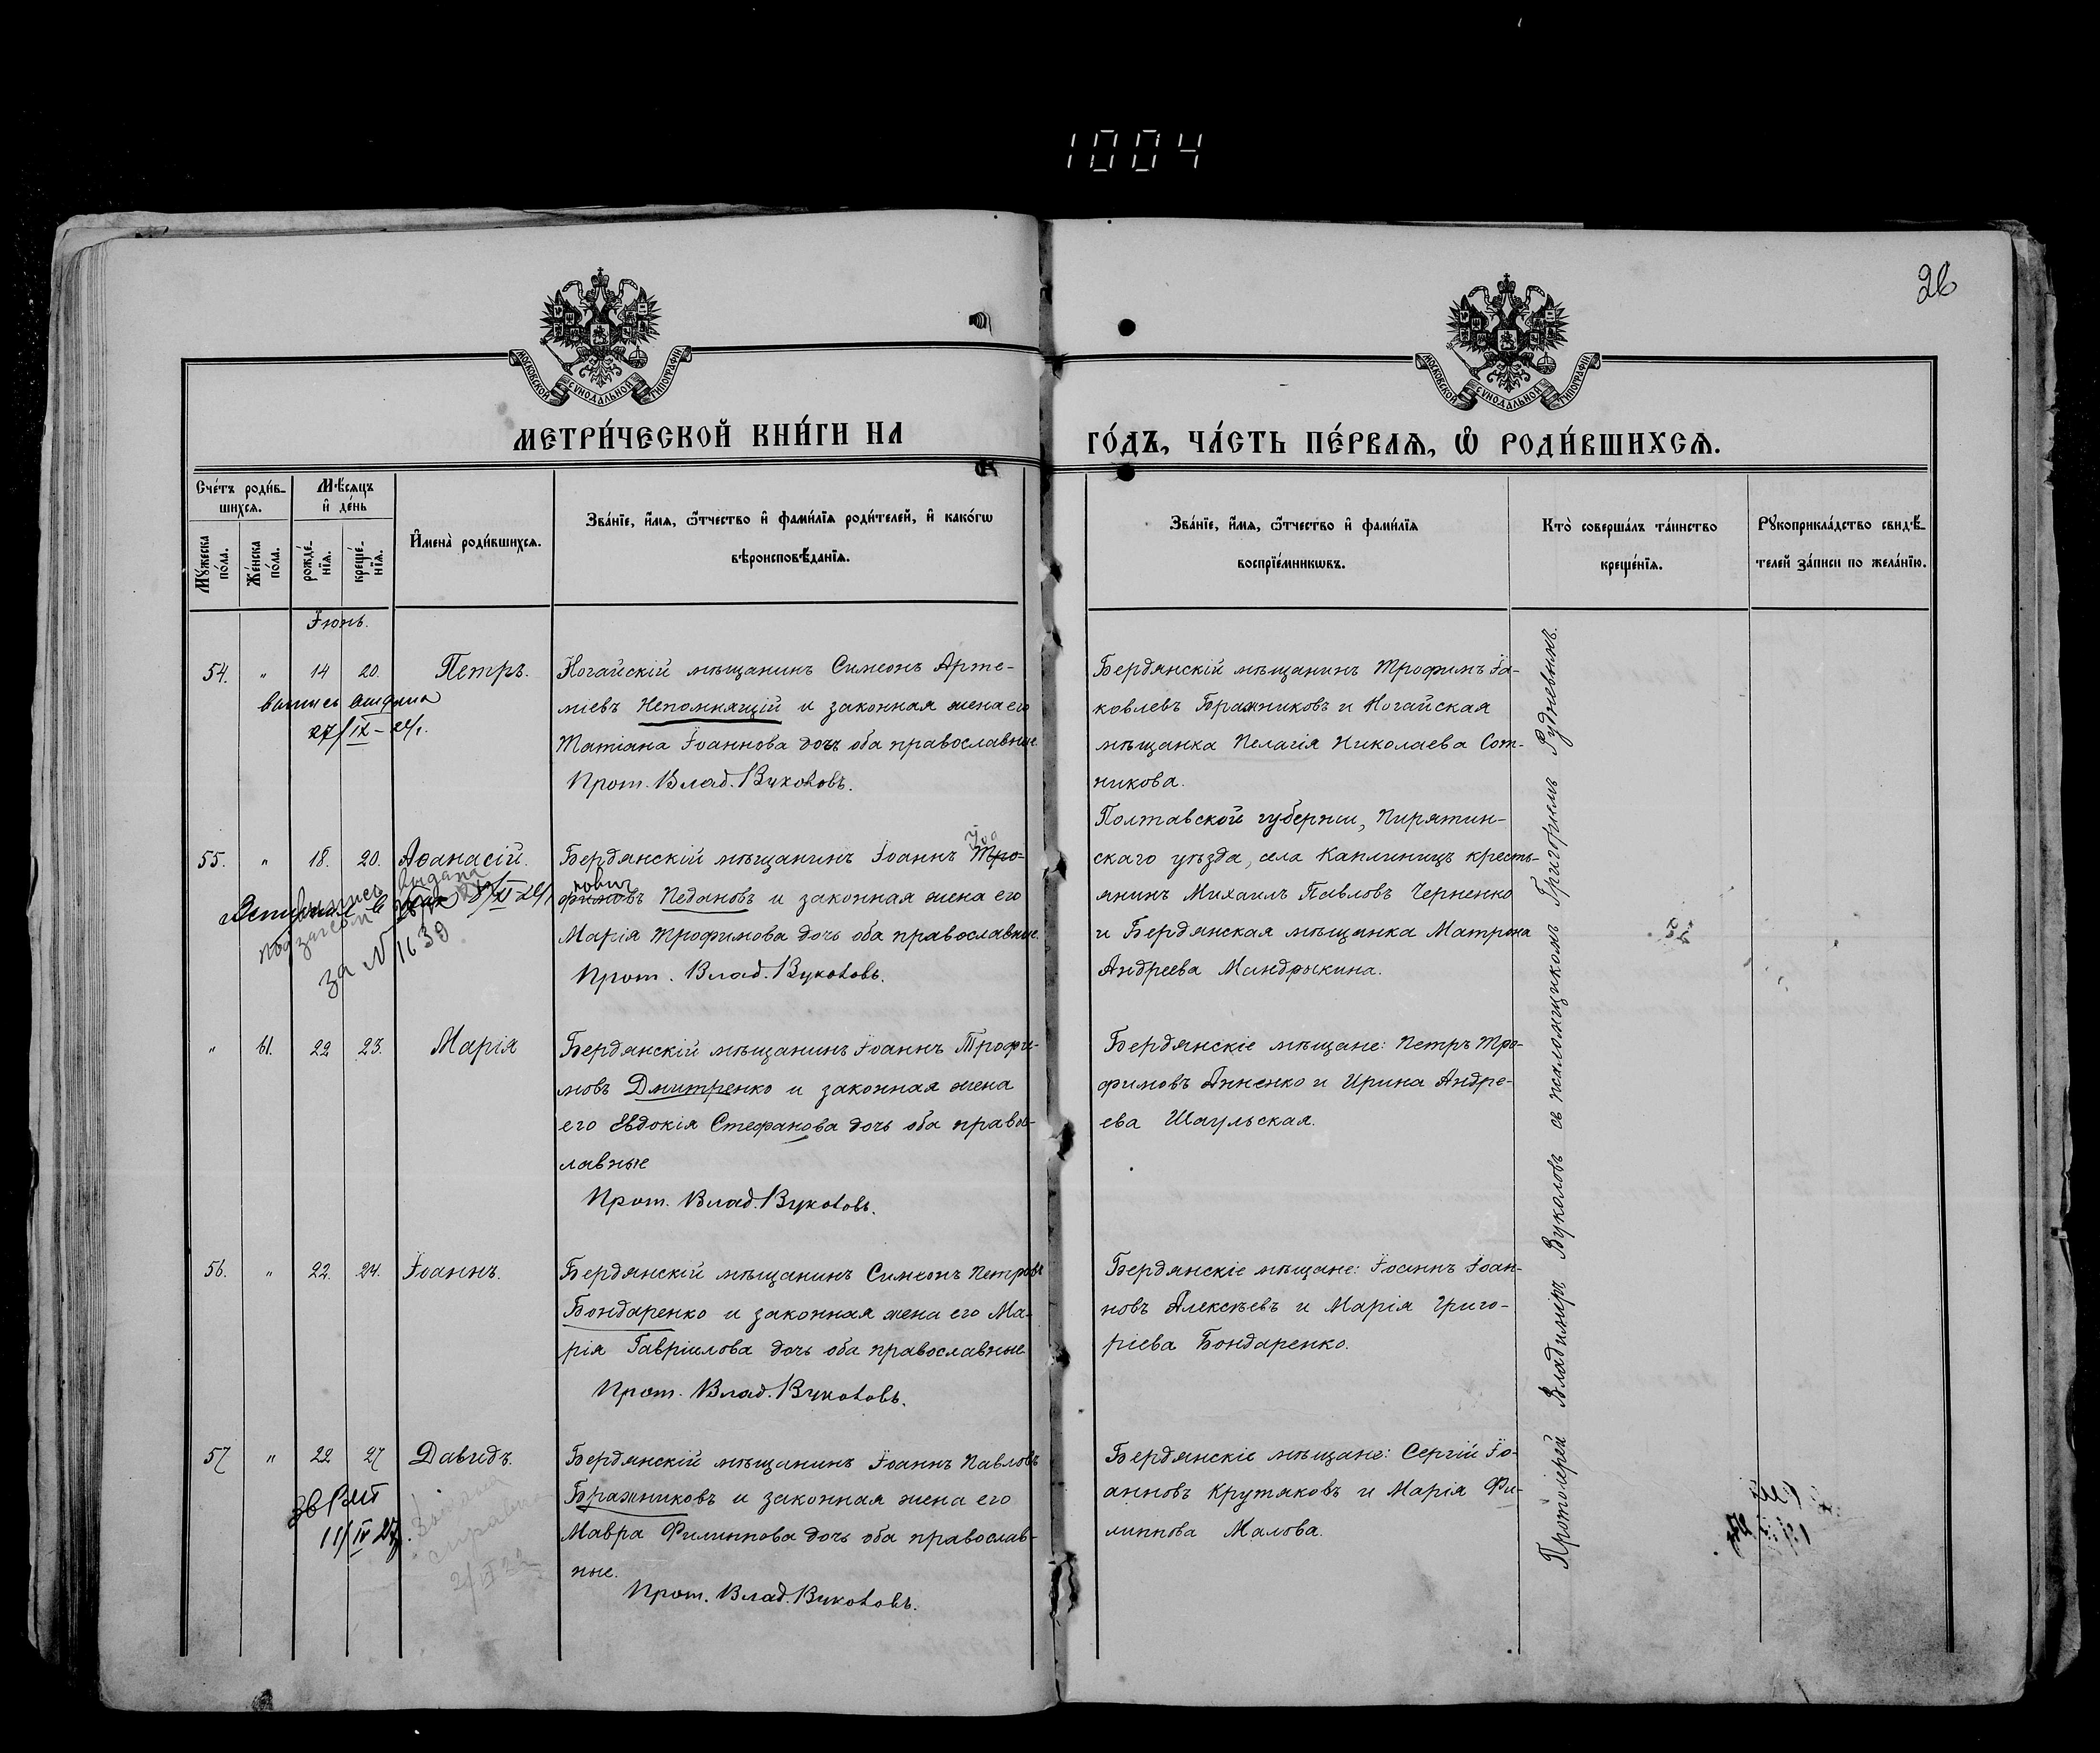 1004
26
МОСКОВСКОЙ СѴНОДАЛЬНОЙ ТИПОГРАФІИ
МОСКОВСКОЙ СѴНОДАЛЬНОЙ ТИПОГРАФІИ
МЕТРИ́ЧЕСКОЙ КНИ́ГИ НА
ГО́ДЪ, ЧА́СТЬ ПЕ́РВАѦ, Ѽ РОДИ́ВШИХСѦ.
Сче́тъ роди́в-
шихсѧ.
Мꙋ́жеска
по́ла.
Же́нска
по́ла.
Мѣ́сѧцъ
и҆ де́нь
рожде́-
нїѧ.
креще́-
нїѧ.
И҆мена̀ роди́вшихсѧ.
Зва́нїе, и҆́мѧ, ѻ҆́тчество и҆ фами́лїѧ роди́телей, и҆ како́гѡ
вѣроисповѣ́данїѧ.
Зва́нїе, и҆́мѧ, ѻ҆́тчество и҆ фами́лїѧ
воспрїе́мникѡвъ.
Кто̀ соверша́лъ та́инство
креще́нїѧ.
Рꙋкоприкла́дство свидѣ́-
телей за́писи по жела́нїю.
Іюнь.
54. " 14 20. Петръ.
выпись выдана
27/IX-24г.
Ногайскій мѣщанинъ Симеонъ Арте-
міевъ Непомнящій и законная жена его
Татіана Іоаннова дочь оба православные.
Прот. Влад. Вукотовъ.
Бердянскій мѣщанинъ Трофимъ Іа-
ковлевъ Бражниковъ и Ногайская
мѣщанка Пелагія Николаева Сот-
никова.
55. " 18. 20. Аѳанасій.
выпись выдана
за № 1639
Бердянскій мѣщанинъ Іоаннъ Тро-
фимовъ Педановъ и законная жена его
Марія Трофимова дочь оба православные.
Прот. Влад. Вукотовъ.
Полтавской губерніи, Пирятин-
скаго уѣзда, села Каплинцъ кресть-
янинъ Михаилъ Павловъ Черненко
и Бердянская мѣщанка Матрона
Андреева Мандрыкина.
" 61. 22 23. Марія
Бердянскій мѣщанинъ Іоаннъ Трофи-
мовъ Дмитренко и законная жена
его Евдокія Стефанова дочь оба правос-
лавные
Прот. Влад. Вукотовъ.
Бердянскіе мѣщане: Петръ Тро-
фимовъ Анненко и Ирина Андре-
ева Шаульская.
56. " 22. 24. Іоаннъ.
Бердянскій мѣщанинъ Симеонъ Петровъ
Бондаренко и законная жена его Ма-
рія Гавріилова дочь оба православные
Прот. Влад. Вукотовъ.
Бердянскіе мѣщане: Іоаннъ Іоан-
новъ Алексѣевъ и Марія Григо-
ріева Бондаренко.
57 " 22 27 Давидъ.
11/IV 27г.
Бердянскій мѣщанинъ Іоаннъ Павловъ
Бражниковъ и законная жена его
Мавра Филиппова дочь оба православ-
ные.
Прот. Влад. Вукотовъ.
Бердянскіе мѣщане: Сергій Іо-
анновъ Крутяковъ и Марія Фи-
липпова Малова.
Протоіерей Владиміръ Вукотовъ съ псаломщикомъ Григоріемъ Рудневымъ.